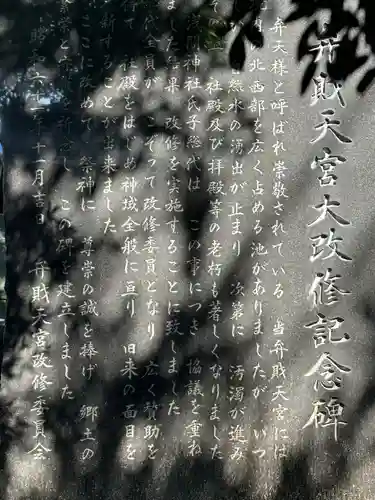 弁財天宮大改修記念碑
弁天様と呼ばれ崇敬されている 当弁財天宮には
北西部を広く占める池がありましたが いつ
然水の湧出が止まり 次第に 汚濁が進み
その上 社殿及び拝殿等の老朽も著しくなりました
浅間神社氏子総代は この事につき 協議を重ね
ました結果 改修を実施することに致しました
代全員が こぞって改修委員となり 広く賛助を
得て 社殿をはじめ神域全般に亘り 旧来の面目を
新することが出来ました
ここに改めて 祭神に 尊崇の誠を捧げ 郷土の
この碑を建立しました
十一月吉日 弁財天宮改修委員会